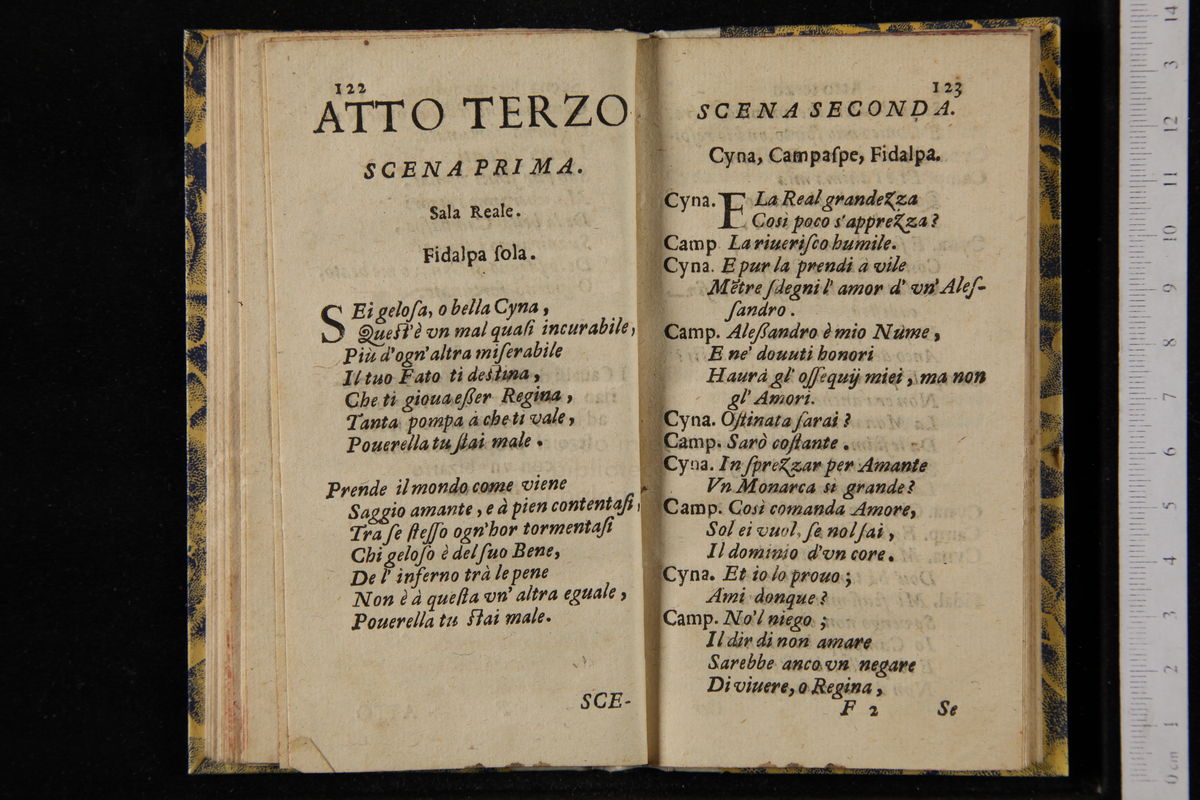 122
ATTO TERZO
SCENA PRIMA.
Sala Reale.
Fidalpa ſola.
SEi geloſa, o bella Cyna,
Queſt'è vn mal quaſi incurabile,
Più d'ogn'altra miſerabile
Il tuo Fato ti deſtina,
Che ti gioua eſſer Regina,
Tanta pompa à che ti vale,
Pouerella tu ſtai male.
Prende il mondo come viene
Saggio amante, e à pien contentaſi,
Tra ſe ſteſſo ogn'hor tormentaſi
Chi geloſo è del ſuo Bene,
De l'inferno trà le pene
Non è à queſta vn'altra eguale,
Pouerella tu ſtai male.
SCE-
123
SCENA SECONDA.
Cyna, Campaſpe, Fidalpa.
Cyna. E La Real grandezza
Così poco s'apprezza?
Camp La riueriſco humile.
Cyna. E pur la prendi à vile
Mẽtre ſdegni l'amor d'vn'Aleſ-
ſandro.
Camp. Aleſſandro è mio Nume,
E ne' douuti honori
Haurà gl'oſſequij miei, ma non
gl'Amori.
Cyna. Oſtinata ſarai?
Camp. Sarò coſtante.
Cyna. In ſprezzar per Amante
Vn Monarca sì grande?
Camp. Così comanda Amore,
Sol ei vuol, ſe nol ſai,
Il dominio d'vn core.
Cyna. Et io lo prouo;
Ami donque?
Camp. No'l niego;
Il dir di non amare
Sarebbe anco vn negare
Di viuere, o Regina,
F 2 Se
14
3
12
11
10
9
8
7
6
5
4
3
2
1
0 cm